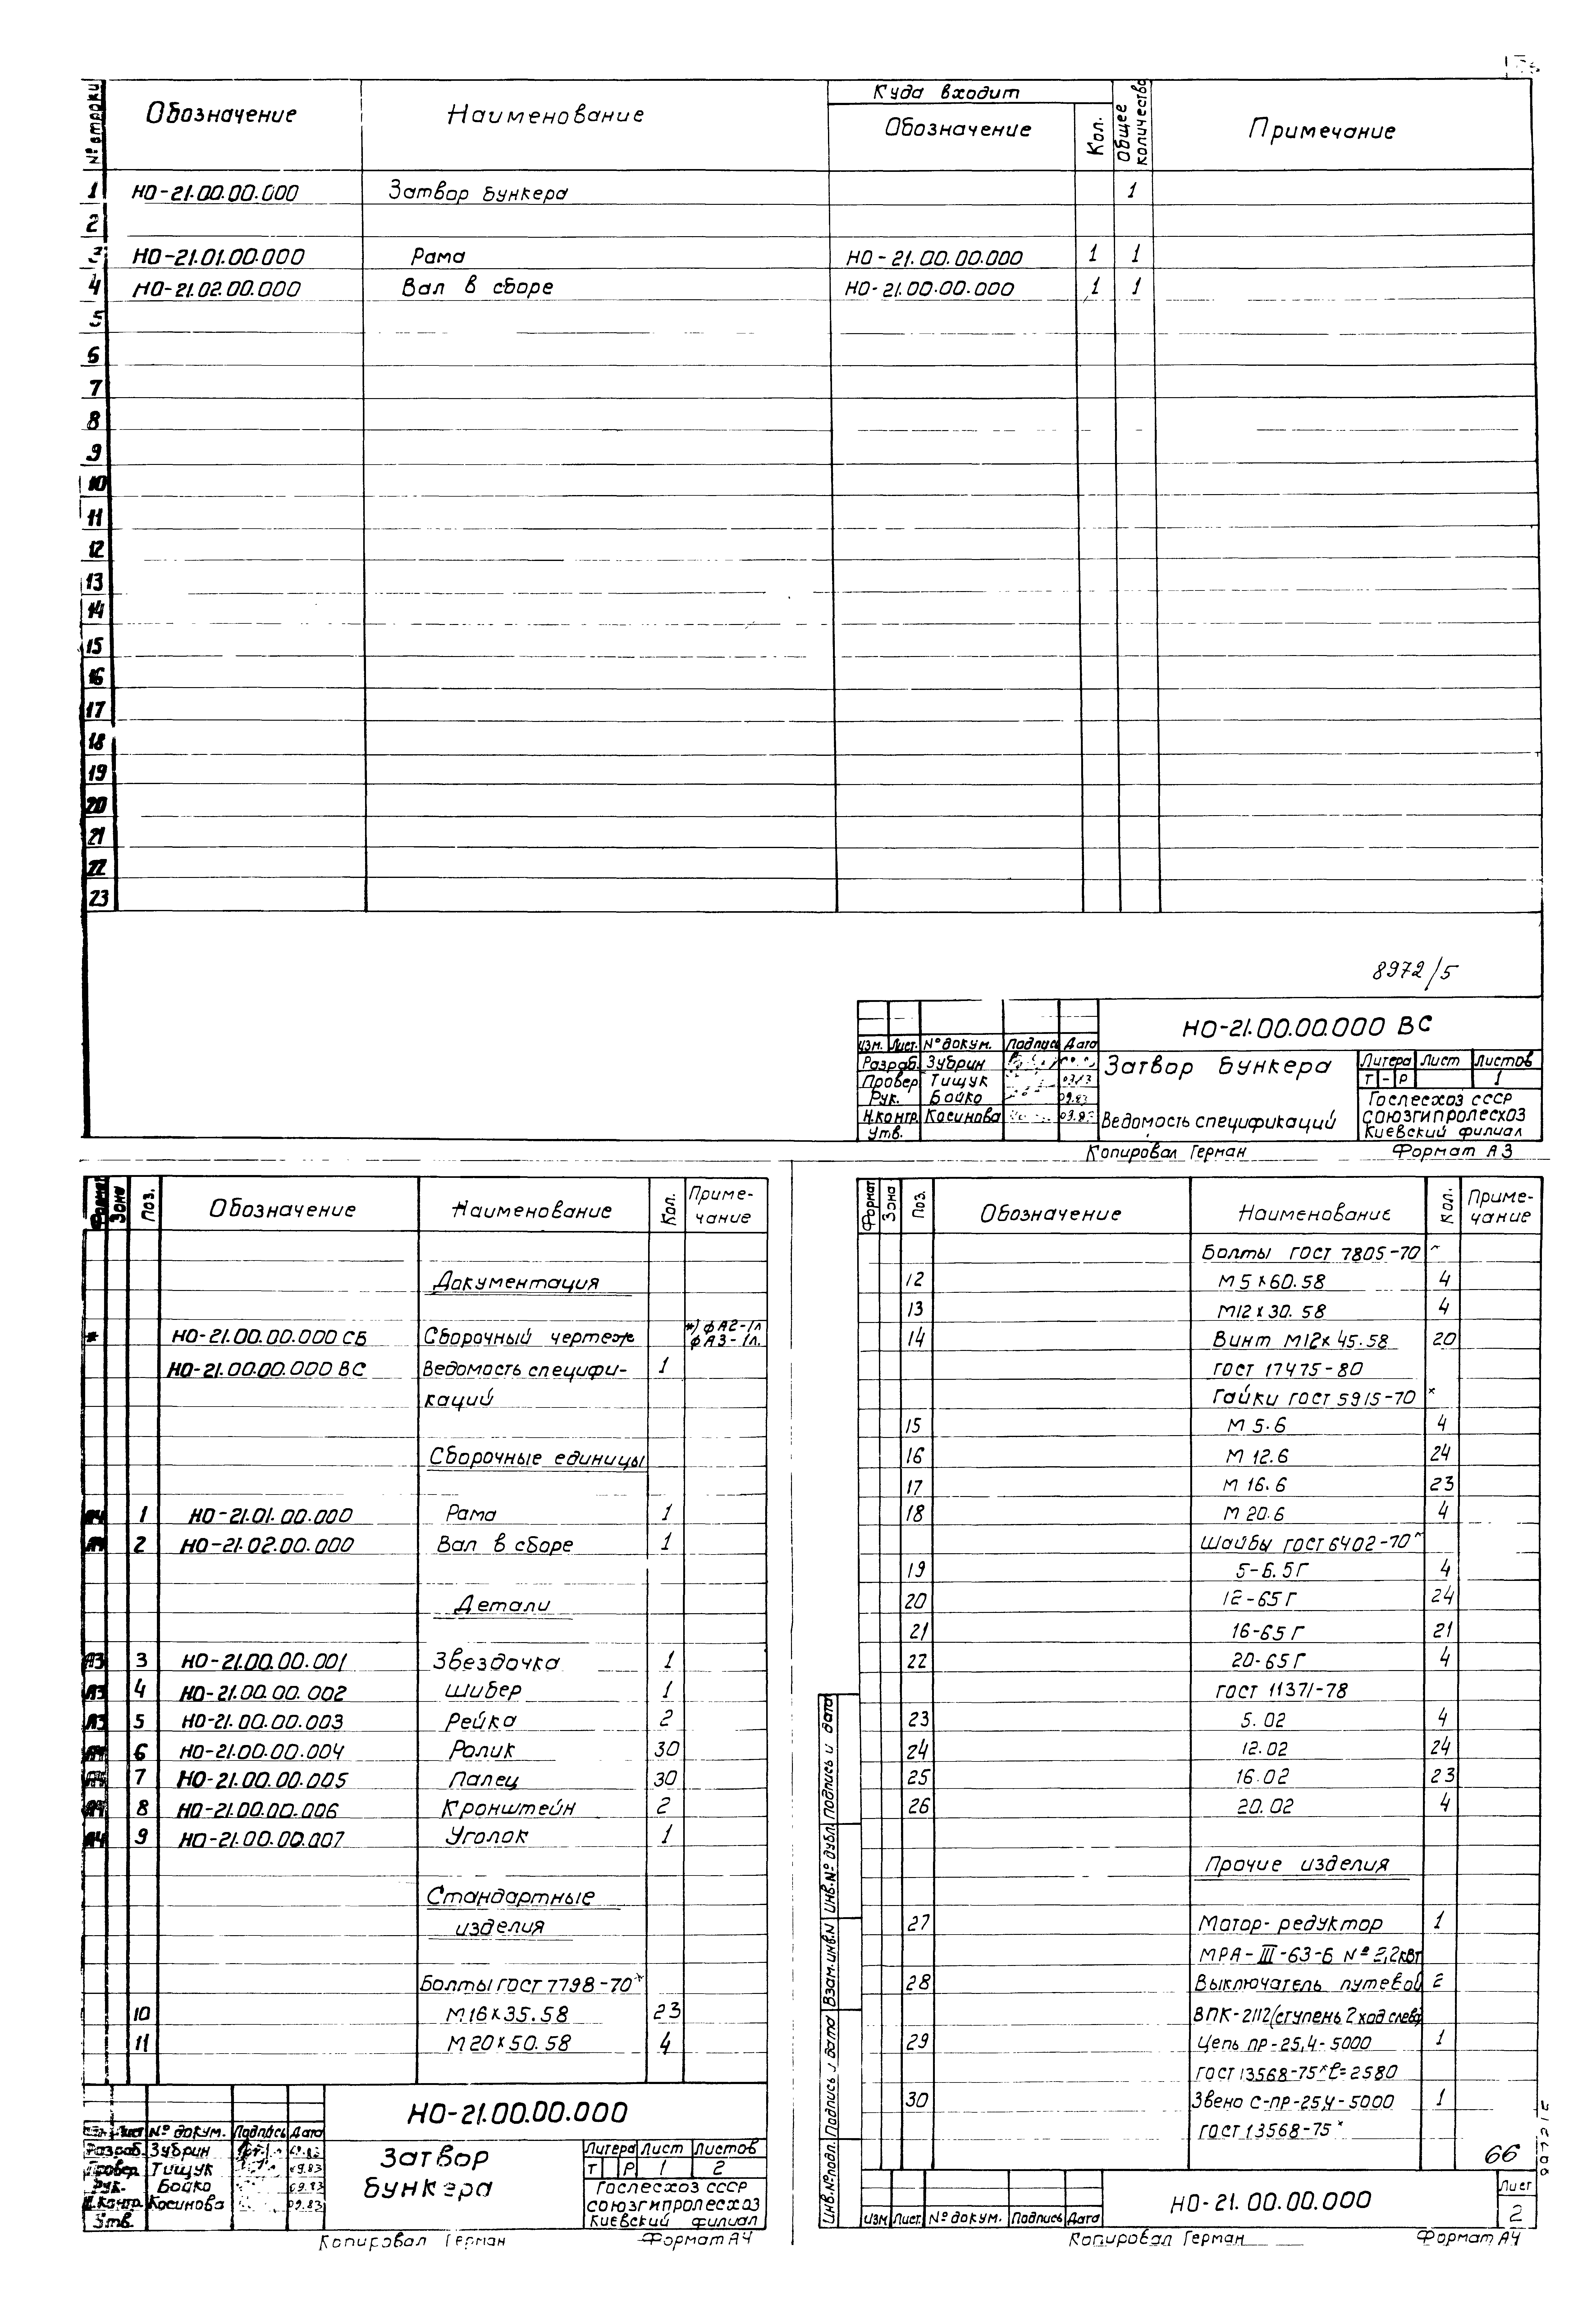 № строки Обозначение Наименование Куда входит Обозначение Кол. Общее количество Примечание
1 НО-21.00.00.000 Затвор бункера 1
2
3 НО-21.01.00.000 Рама НО-21.00.00.000 1 1
4 НО-21.02.00.000 Вал в сборе НО-21.00.00.000 1 1
5
6
7
8
9
10
11
12
13
14
15
16
17
18
19
20
21
22
23
8972/5
НО-21.00.00.000 ВС
Изм. Лист. № докум. Подпись Дата
Разраб. Зубрин
Провер Тищук
Рук. Бойко 09.83
Н.контр. Косинова 09.83
Утв.
Затвор бункера
Ведомость спецификаций
Литера Лист Листов
Т - Р 1
Гослесхоз СССР
Союзгипролесхоз
Киевский филиал
Копировал Герман Формат А3
Формат Зона Поз. Обозначение Наименование Кол. Приме-
чание
Документация
* НО-21.00.00.000 СБ Сборочный чертеж *) фА2-1л
фА3-1л.
НО-21.00.00.000 ВС Ведомость специфи- 1
каций
Сборочные единицы
А4 1 НО-21.01.00.000 Рама 1
А4 2 НО-21.02.00.000 Вал в сборе 1
Детали
А3 3 НО-21.00.00.001 Звездочка 1
А3 4 НО-21.00.00.002 Шибер 1
А3 5 НО-21.00.00.003 Рейка 2
А4 6 НО-21.00.00.004 Ролик 30
7 НО-21.00.00.005 Палец 30
А4 8 НО-21.00.00.006 Кронштейн 2
А4 9 НО-21.00.00.007 Уголок 1
Стандартные
изделия
Болты ГОСТ 7798-70*
10 М16х35.58 23
11 М20х50.58 4
НО-21.00.00.000
Лист № докум. Подпись Дата
Разраб. Зубрин 09.83
Провер. Тищук 09.83
Рук. Бойко 09.83
Н.контр. Косинова 09.83
Утв.
Затвор
бункера
Литера Лист Листов
Т Р 1 2
Гослесхоз СССР
Союзгипролесхоз
Киевский филиал
Копировал Герман Формат А4
Формат Зона Поз. Обозначение Наименование Кол. Приме-
чание
Болты ГОСТ 7805-70*
12 М5х60.58 4
13 М12х30.58 4
14 Винт М12х45.58 20
ГОСТ 17475-80
Гайки ГОСТ 5915-70*
15 М5.6 4
16 М12.6 24
17 М16.6 23
18 М20.6 4
Шайбы ГОСТ 6402-70*
19 5-6.5Г 4
20 12-65Г 24
21 16-65Г 21
22 20-65Г 4
ГОСТ 11371-78
23 5.02 4
24 12.02 24
25 16.02 23
26 20.02 4
Прочие изделия
27 Мотор-редуктор 1
МРА-III-63-Б №=2,2кВт
28 Выключатель путевой 2
ВПК-2112(ступень 2 ход слева)
29 Цепь ПР-25,4-5000 1
ГОСТ 13568-75* ℓ=2580
30 Звено С-ПР-25,4-5000 1
ГОСТ 13568-75*
66
Инв.№ подл. Подпись и дата Взам.инв.№ Инв.№ дубл. Подпись и дата
Изм Лист. № докум. Подпись Дата
НО-21.00.00.000
Лист
2
Копировал Герман Формат А4